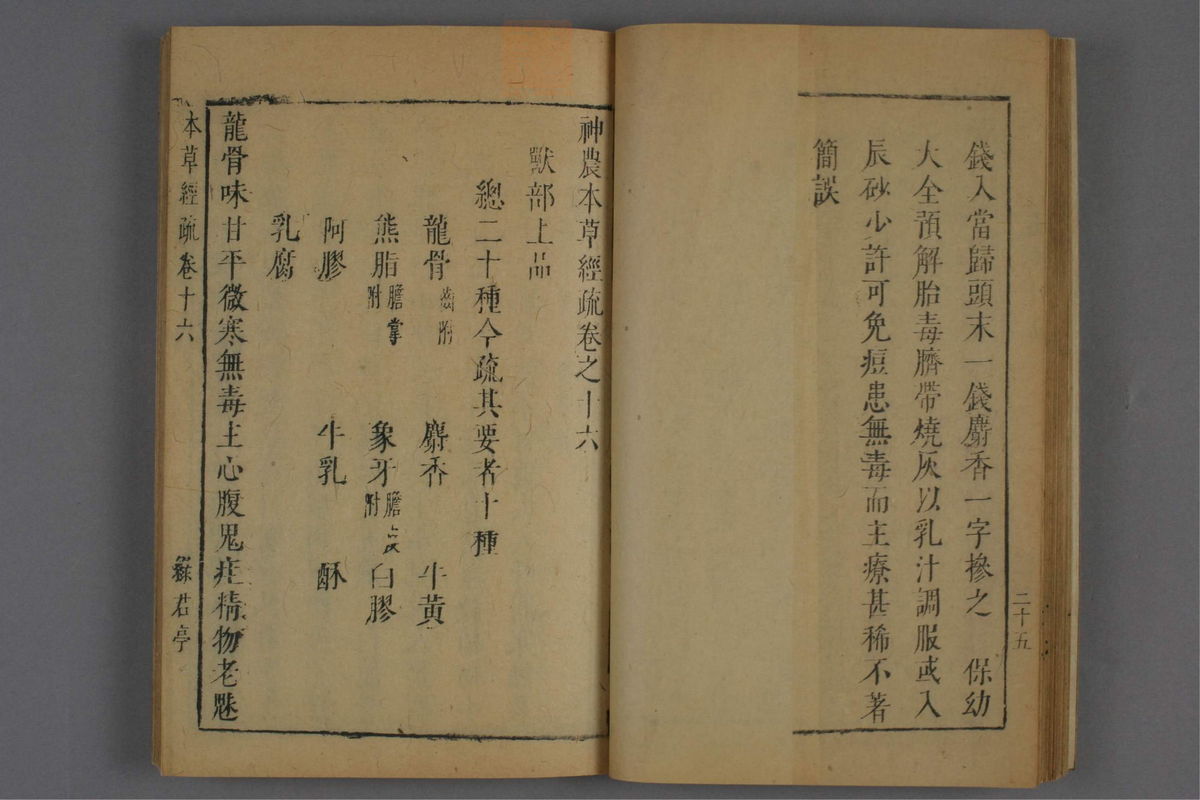 錢入當歸頭末一錢麝香一字摻之　保幼
大全預解胎毒臍帶燒灰以乳汁調服或入
辰砂少許可免痘患無毒而主療甚稀不著
簡誤
二十五
神農本草經疏卷之十六
獸部上品
總二十種今疏其要者十種
龍骨齒附　麝香　牛黃
熊脂膽掌附　象牙膽附　白膠
阿膠　牛乳　酥
乳腐
龍骨味甘平微寒無毒主心腹鬼疰精物老魅
本草經疏卷十六
君亭